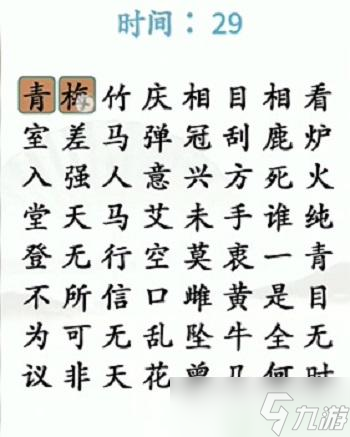 时间：29
青梅竹庆相目相看
室差马弹冠刮鹿炉
入强人意兴方死火
堂天马艾未手谁纯
登无行空莫衷一青
不所信口雌黄是目
为可无乱坠牛全无
议非天花曾几何时
九游